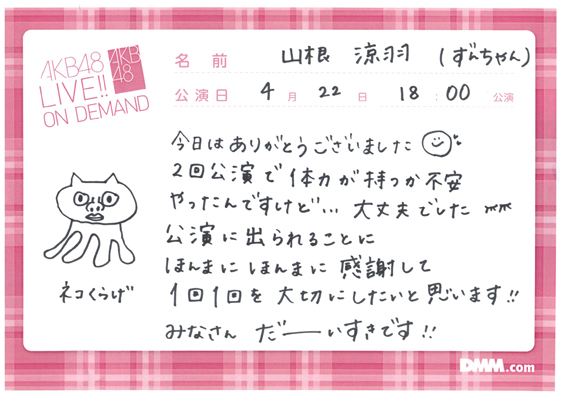 AKB48
LIVE!!
ON DEMAND
AKB
48
名前 山根 涼羽 (ずんちゃん)
公演日 4月 22日 18:00 公演
今日はありがとうございました
2回公演で体力が持つか不安
やったんですけど… 大丈夫でした
公演に出られることに
ほんまにほんまに感謝して
1回1回を大切にしたいと思います!!
みなさん だーいすきです!!
ネコくらげ
DMM.com